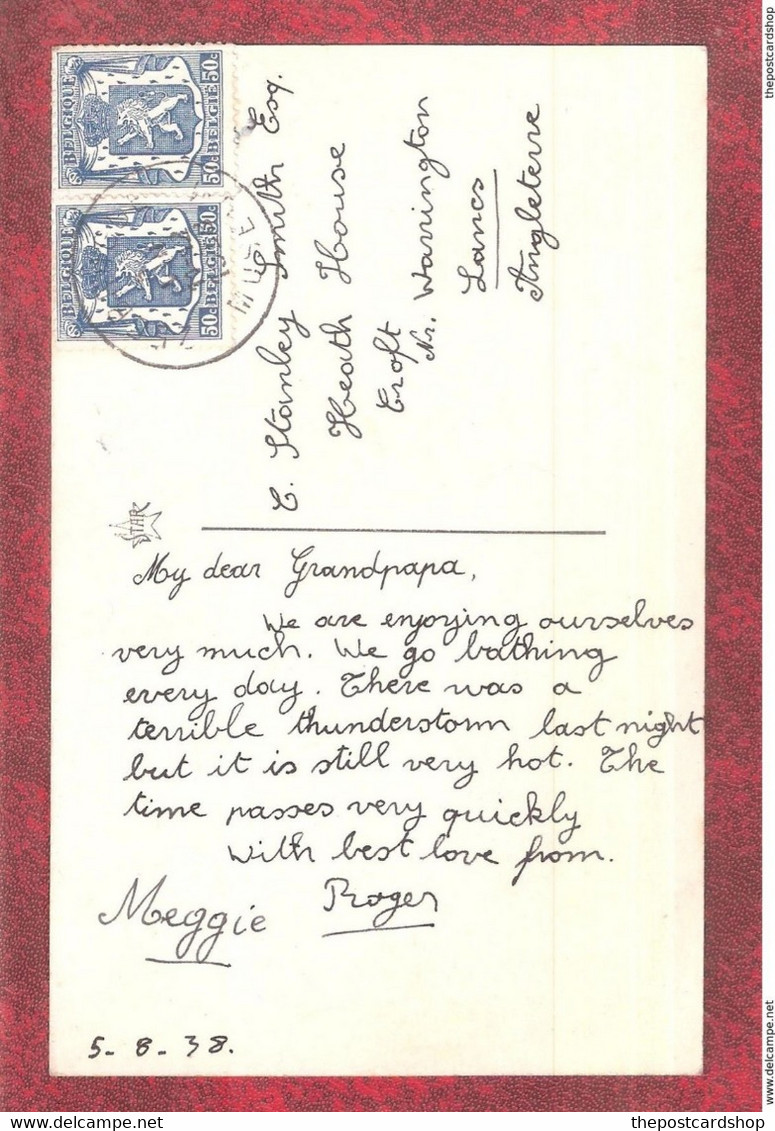 BELGIQUE 50c BELGIE 50c
BELGIQUE 50c BELGIE 50c
C. Stanley Smith Esq.
Heath House
Croft
Nr. Warrington
Lancs
Angleterre
STAR
My dear Grandpapa,
We are enjoying ourselves
very much. We go bathing
every day. There was a
terrible thunderstorm last night
but it is still very hot. The
time passes very quickly
With best love from.
Roger
Meggie
5-8-38.
thepostcardshop
www.delcampe.net
www.delcampe.net
thepostcardshop